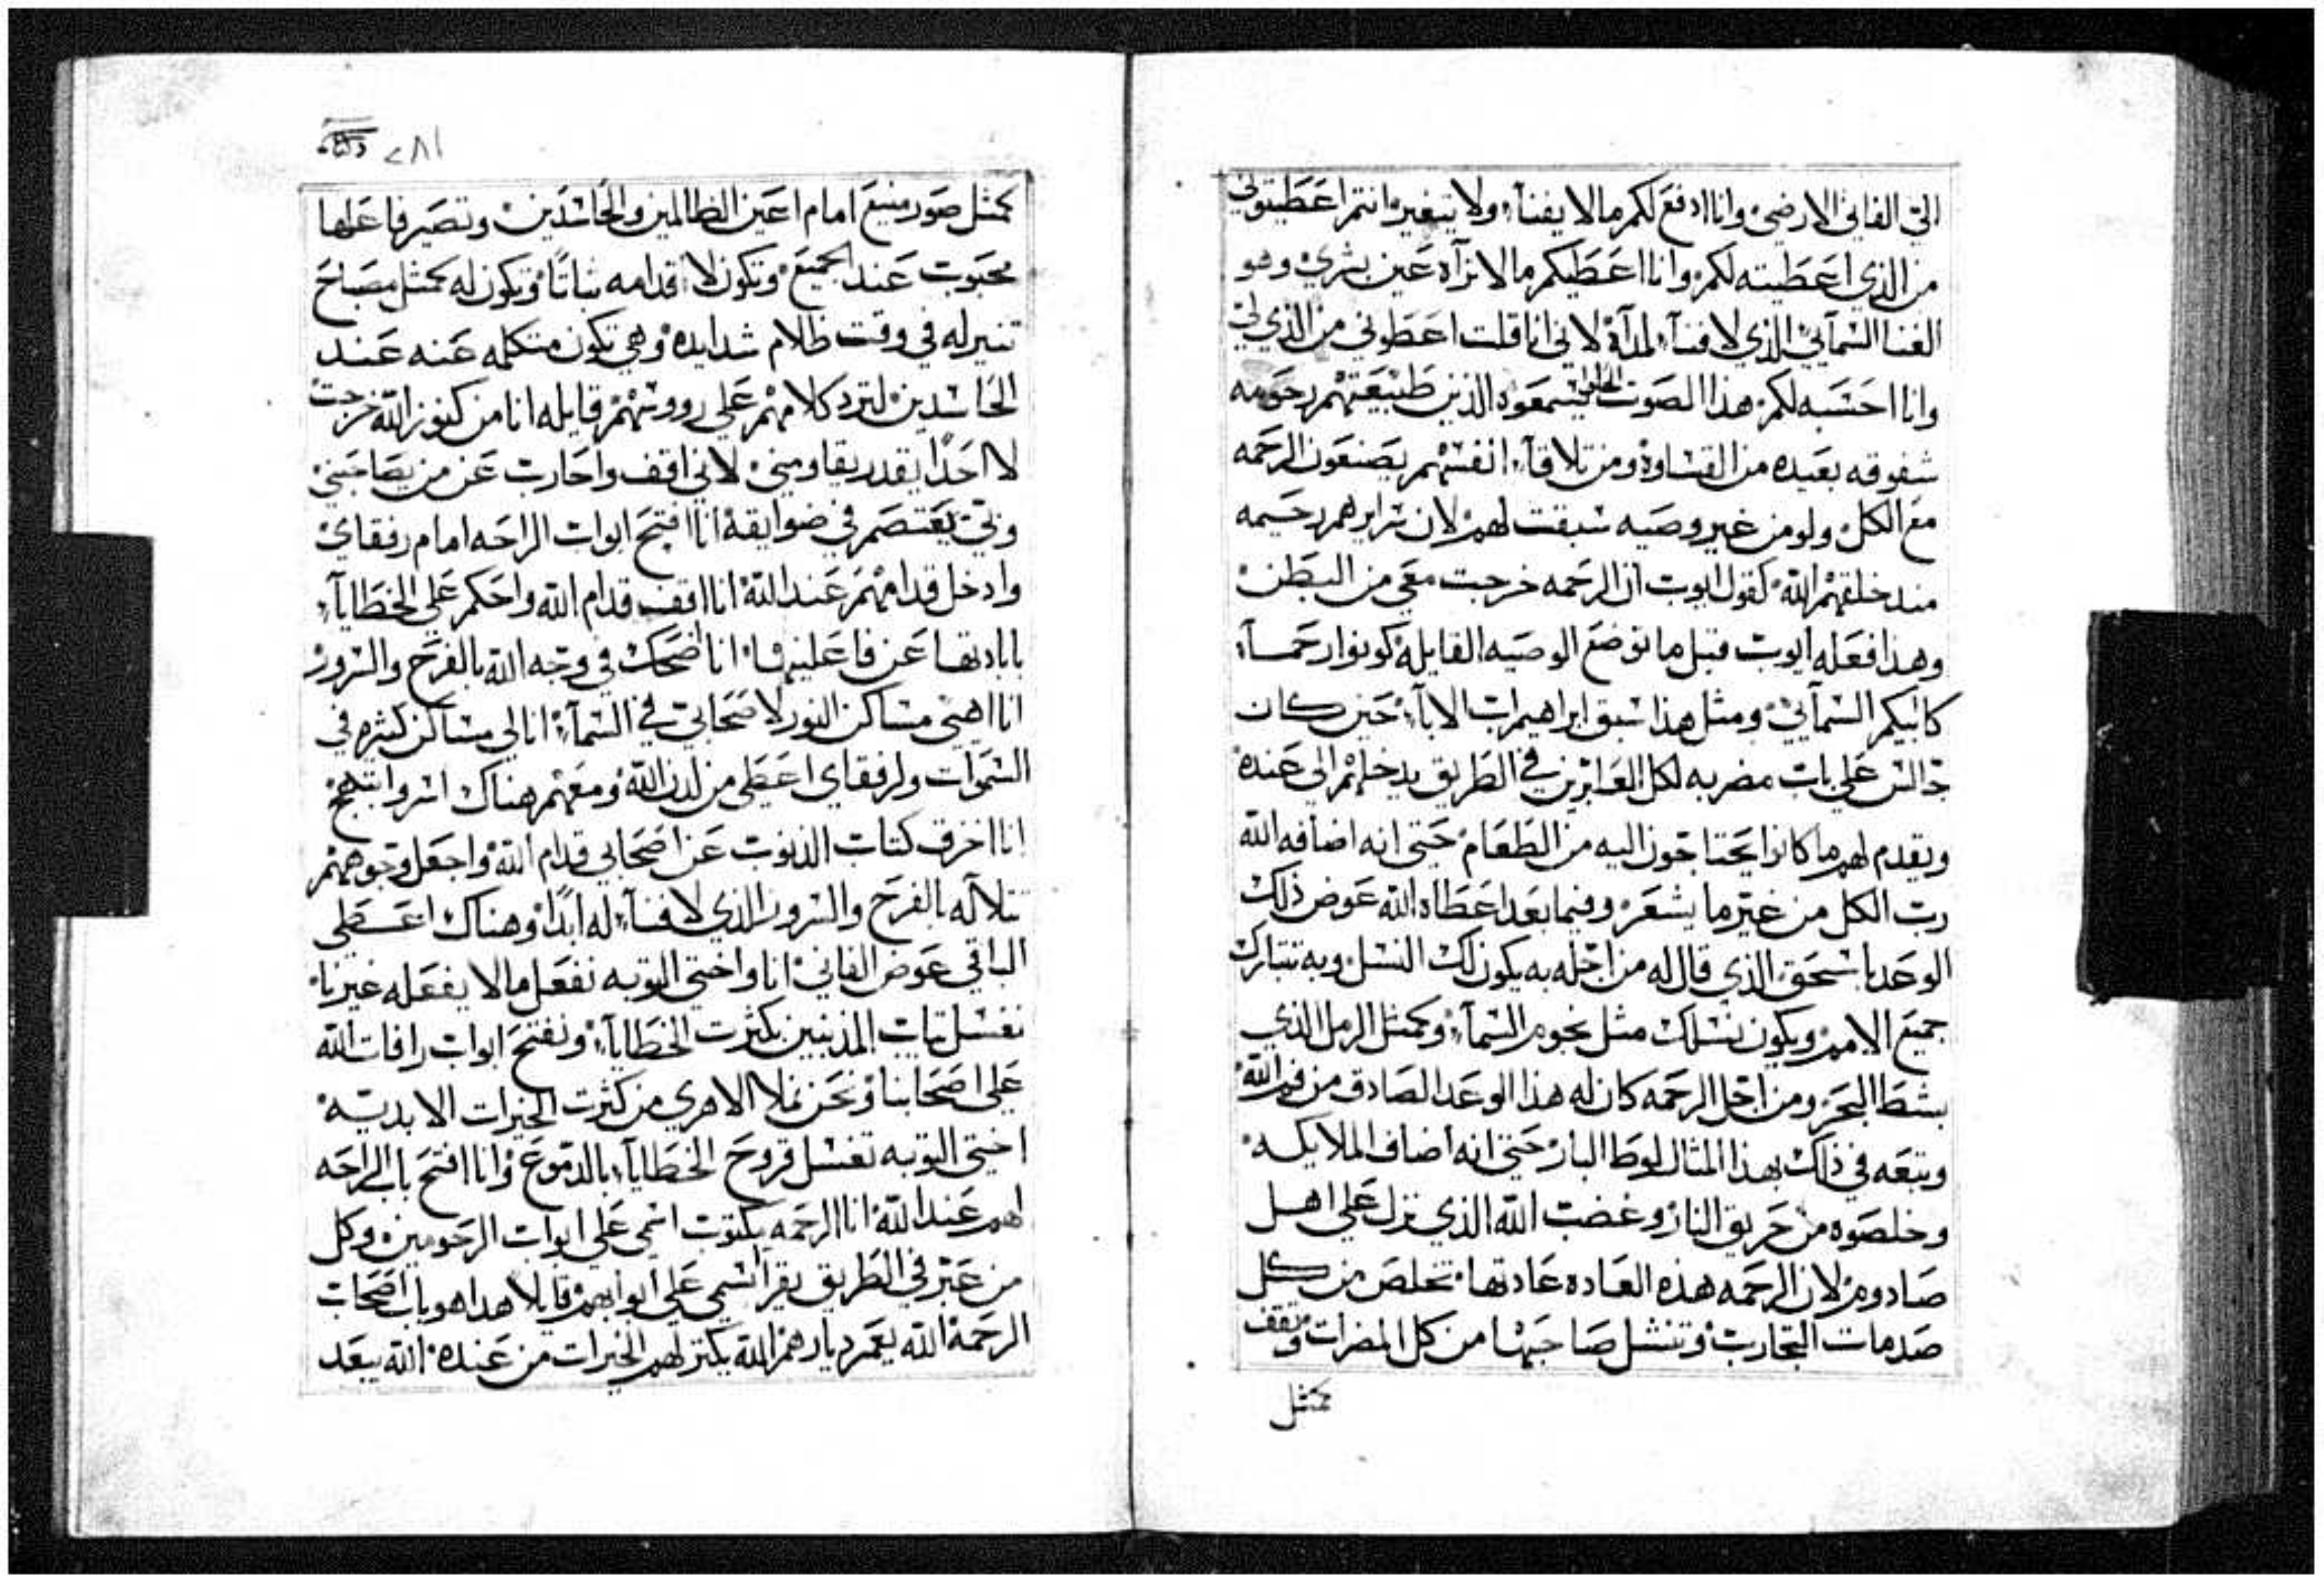 التي الفاني الارضي وانا ادفع لكم ما لا يفنآ، ولا يتغير، انتم اعطيتوني
من الذي اعطيته لكم، وانا اعطيكم ما لا تراه عين بشري، وهو
الغنا السمآئي الذي لا فنآء لمدآه، لاني انا قلت اعطوني من الذي لي
وانا احسبه لكم، هذا الصوت يسمعوه الذين طبيعتهم رحومه
شفوقه بعيده من القساوة ومن تلاقآ انفسهم يصنعون الرحمه
مع الكل، ولو من غير وصيه سبقت لهم، لان سرايرهم رحيمه
مند خلقهم الله، كقول ايوب ان الرحمه خرجت معي من البطن،
وهدا فعله ايوب قبل ما توضع الوصيه القايله كونوا رحمآء
كابيكم السمآئي، ومثل هذا سبق ابراهيم اب الابآ، حين كان
جالس علي باب مضربه لكل العابرين في الطريق يدخلهم الي عنده
ويقدم لهم ما كانوا يحتاجون اليه من الطعام، حتي انه اضافه الله
رب الكل من غير ما يشعر، وفيما بعد اعطاه الله عوض ذلك
الوعد باسحق الذي قال له من اجله به يكون لك النسل وبه تتبارك
جميع الامم، ويكون نسلك مثل نجوم السمآء، وكمثل الرمل الذي
بشط البحر، ومن اجل الرحمه كان له هذا الوعد الصادق من فم الله،
وتبعه في ذلك بهذا المثال لوط البار، حتي انه اضاف الملايكه،
وخلصوه من حريق النار، وغضب الله الذي نزل علي اهل
صادوم، لان الرحمه هذه العاده عادتها، تخلص من كل
صدمات التجارب، وتنشل صاحبها من كل المضرات، وتقف
كمثل
٢٨١
كمثل صور منيع امام اعين الظالمين والحاسدين، وتصير فاعلها
محبوب عند الجميع، وتكون لاقدامه ثباتًا، وتكون له كمثل مصباح
تنير له في وقت ظلام شدايده، وهي تكون متكلمه عنه عند
الحاسدين لترد كلامهم علي رووسهم، قايله انا من كنوز الله خرجت
لا احدًا يقدر يقاومني، لاني اقف واحارب عن من يصاحبني
وبي يعتصم في ضوايقه، انا افتح ابواب الراحه امام رفقاي
وادخل قدامهم عند الله، انا اقف قدام الله واحكم علي الخطايآ
بابادتها عن فاعليها، انا اضحك في وجه الله بالفرح والسرور
انا اهيي مساكن النور لاصحابي في السمآ، انا لي مساكن كثيره في
السموات ولرفقاي اعطي من لدن الله، ومعهم هناك اسر وابتهج
انا اخزق كتاب الذنوب عن اصحابي قدام الله، واجعل وجوههم
تتلالآ له بالفرح والسرور الذي لا فنآء له ابدًا، وهناك اعطي
الباقي عوض الفاني، انا واختي التوبه نفعل ما لا يفعله غيرنا،
نغسل تياب المذنبين بكثرت الخطايآ، ونفتح ابواب رافات الله
علي اصحابنا، ونحن نملا الاهري من كثرت الخيرات الابديه،
اختي التوبه تغسل قروح الخطايآ بالدموع، وانا افتح باب الراحه
لهم عند الله، انا الرحمه مكتوب اسمي علي ابواب الرحومين، وكل
من عبر في الطريق يقرا اسمي علي ابوابهم، قايلا هدا هو باب اصحاب
الرحمة، الله يعمر ديارهم، الله يكتر لهم الخيرات من عنده، الله يبعد